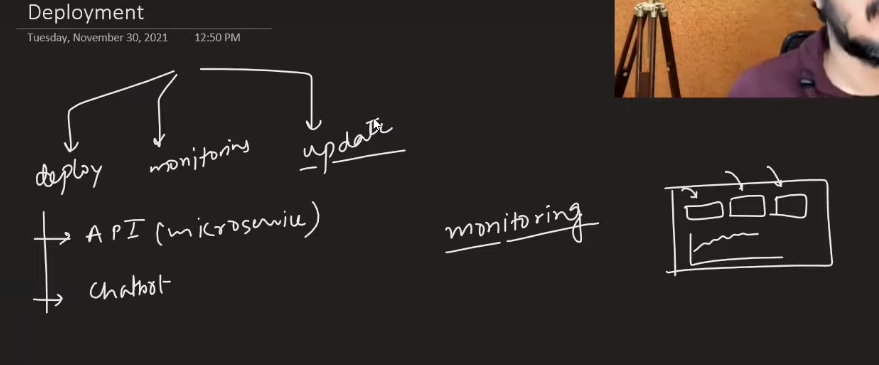 Deployment
Tuesday, November 30, 2021 12:50 PM
deploy monitoring update
API (microservice)
monitoring
Chatbot